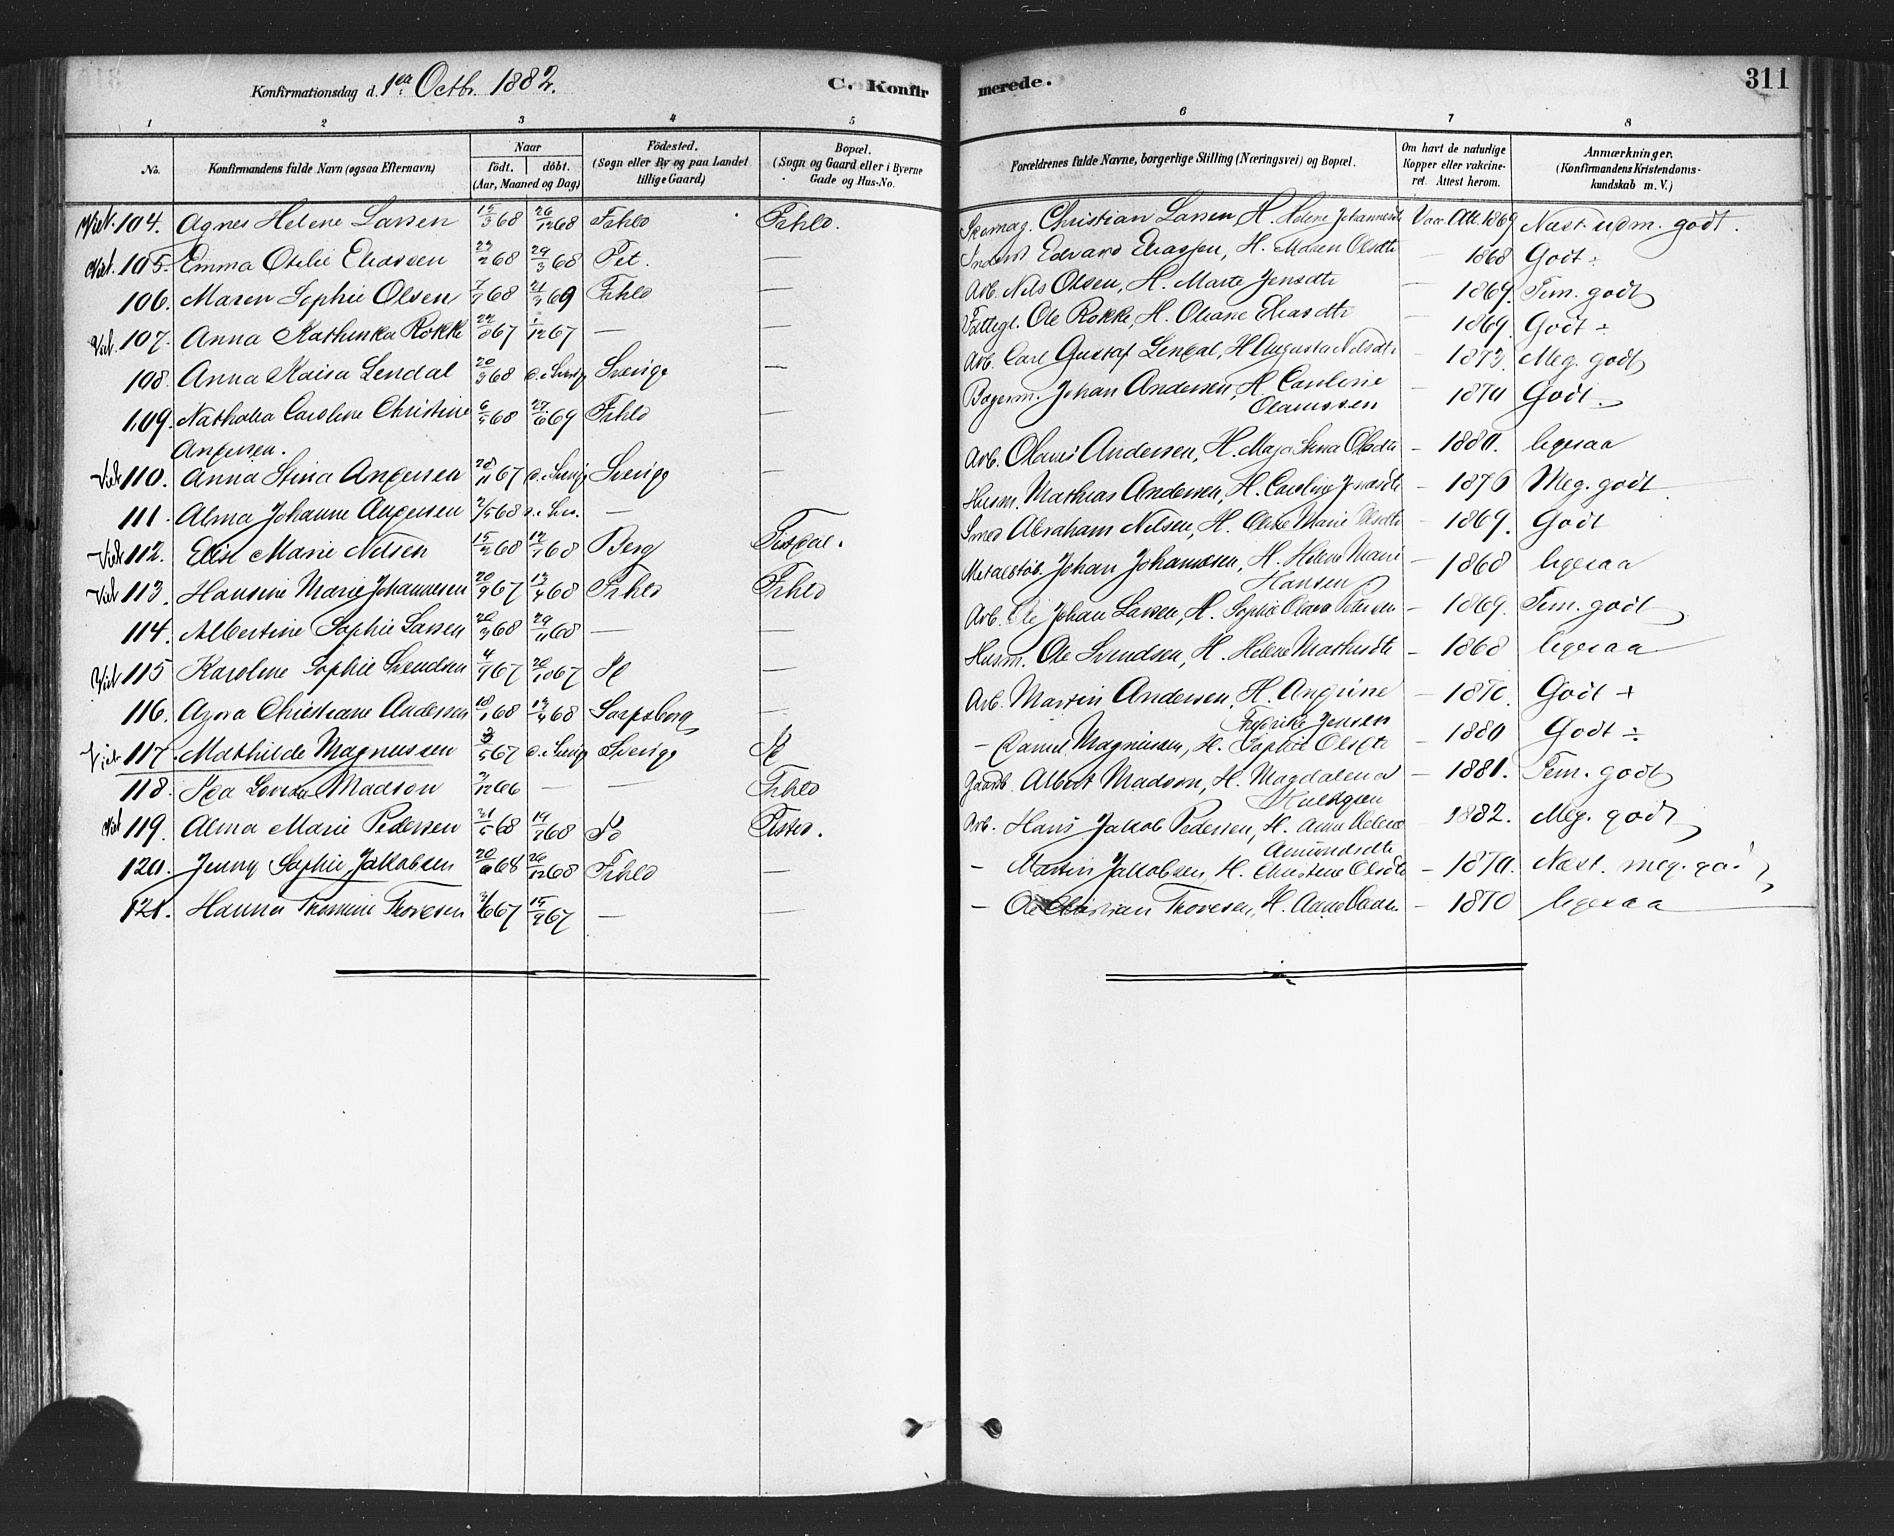 Konfirmationsdag d. 1ste Octbr. 1882.
C. Konfir
merede.
311
1 2 3 4 5 6 7 8
No.
Konfirmandens fulde Navn (ogsaa Efternavn)
Naar
født. døbt.
(Aar, Maaned og Dag)
Födested.
(Sogn eller By og paa Landet
tillige Gaard)
Bopæl.
(Sogn og Gaard eller i Byerne
Gade og Hus-No.
Forældrenes fulde Navne, borgerlige Stilling (Næringsvei) og Bopæl.
Om havt de naturlige
Kopper eller vakcine-
ret. Attest herom.
Anmærkninger.
(Konfirmandens Kristendoms-
kundskab m. V.)
104. Agnes Helene Larsen 15/3 68 26/12 68 Frhld Frhld. Christian Larsen, H. Helene Johannesdt Vac. Att. 1869 Næst udm. godt.
105. Emma Otilie Eliassen 23/2 68 29/3 68 Fet. — Edvard Eliassen, H. Maren Olsdt — 1868 Godt ÷
106. Maren Sophie Olsen 68 69 Frhld — Arb. Nils Olsen, H. Marte Jensdt — 1869. Tem. godt
107. Anna Kathinka Rokke 22/8 67 12 67 — — Fattigl. Ole Rokke, H. Oliane Eliasdt — 1869 Godt ÷
108. Anna Kaisa Lendal 20/3 68 d. i Sverig Sverige — Arb. Carl Gustaf Lendal, H. Augusta Nilsdt — 1873. Meg. godt
109. Nathalia Caroline Christine 6/5 68 27/6 69 Frhld — Bagerm. Johan Andersen, H. Caroline — 1870 Godt.
Andersen. Olaussen
110. Anna Stina Andersen 28/11 67 d. i Sverig Sverige — Arb. Olaus Andersen, H. Maja Stina Olsdt — 1880. ligesaa
111. Alma Johanne Andersen 2/5 68 d. i Sve. — Husm. Mathias Andersen, H. Caroline — 1876 Meg. godt
112. Elise Marie Nilsen 15/2 68 12/7 68 Berg Tistedal. Smed Abraham Nilsen, H. Marie Olsdt — 1869. Godt
113. Hansine Marie Johannesen 20/9 67 13/4 68 Frhld Frhld Johan Johannesen, H. Helene Marie — 1868 ligesaa
Hansen
114. Albertine Sophie Larsen 20/3 68 29/11 68 — — Arb. Ole Johan Larsen, H. Sophie — 1869. Tem. godt
115 Karoline Sophie Svendsen 4/9 67 20/10 67 — Husm. Ole Svendsen, H. Helene Mathisdt — 1868 ligesaa
116. Agora Christiane Andersen 18/1 68 13/4 68 Sarpsborg — Arb. Martin Andersen, H. Andrine — 1870. Godt +
Fredrikke Jensen
117. Mathilde Magnussen 3/5 67 d. i Sverig Sverige — Daniel Magnussen, H. Sophie Olsdt — 1880 Godt ÷
118. Ida Lovisa Madson 12 66 — — Frhld Gaardb. Albert Madson, H. Magdalena — 1881. Tem. godt
119. Alma Marie Pedersen 31/5 68 19/7 68 Id Tisted. Arb. Hans Jakob Pedersen, H. Anne Helene 1882. Meg. godt
Amundsdt
120. Jenny Sophie Jakobsen 20/9 68 26/12 68 Frhld — — Martin Jakobsen, H. Christine Olsdt — 1870. Næst. meg. godt
121. Hanna Thomine Thoresen 67 15/9 67 — — — Ole Christian Thoresen, H. — 1870 ligesaa